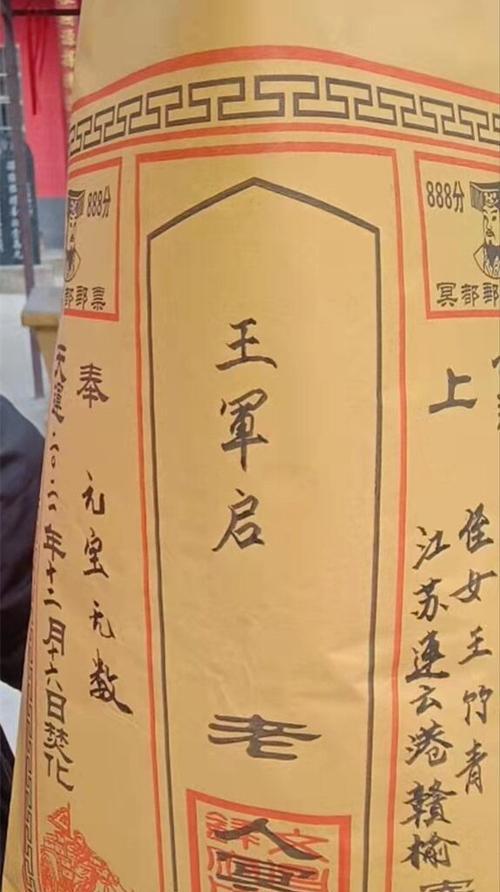 888分
冥都郵
侄女王竹青
上
江苏連云港贛榆
王軍启
老
人
888分
都郵票
奉
元宝无数
天運二〇二二年十二月十六日焚化